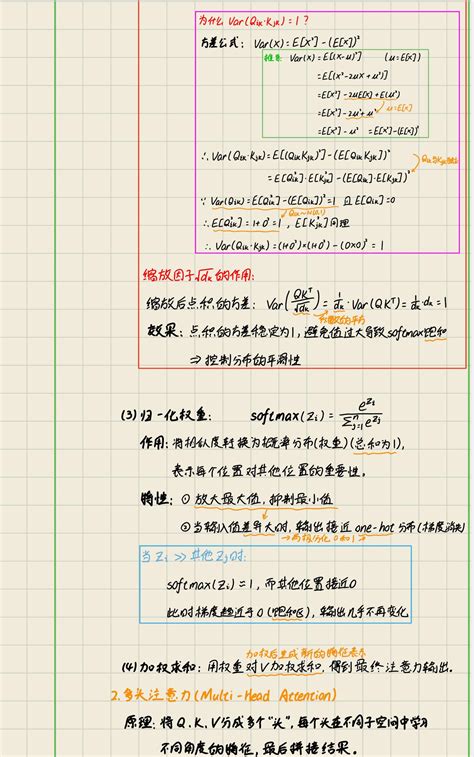 为什么 Var(Qik·Kjk)=1？
方差公式：Var(X)=E[X²]-(E[X])²
推导：Var(X)=E[(X-μ)²] (μ=E[X])
=E[(X²-2μX+μ²)]
=E[X²]-2μE[X]+E(μ²)
=E[X²]-2μ²+μ² μ=E[X]
=E[X²]-μ² =E[X²]-(E[X])²
∴Var(Qik·Kjk)=E[(QikKjk)²]-(E[QikKjk])²
Qik与Kjk独立
=E[Qik²]·E[Kjk²]-(E[Qik]·E[Kjk])²
∵Var(Qik)=E[Qik²]-(E[Qik])²=1 且E[Qik]=0
Qik~N(0,1)
∴E[Qik²]=1+0²=1，E[Kjk²]同理
∴Var(Qik·Kjk)=(1+0²)×(1+0²)-(0×0)²=1
缩放因子√dk的作用：
缩放后点积的方差：Var(QKᵀ/√dk)=1/dk·Var(QKᵀ)=1/dk·dk=1
系数的平方
效果：点积的方差稳定为1，避免值过大导致softmax饱和
⇒控制分布的平滑性
(3)归一化权重：softmax(Zi)=e^Zi/Σⁿj=1 e^Zj
作用：将相似度转换为概率分布(权重)(总和为1)，
表示每个位置对其他位置的重要性。
特性：①放大最大值，抑制最小值
②当输入值差异大时，输出接近one-hot分布(梯度消失)
→两极分化0和1
当Zi≫其他Zj时：
softmax(Zi)≈1，而其他位置接近0
此时梯度趋近于0(饱和区)，输出几乎不再变化
加权后生成新的特征表示
(4)加权求和：用权重对V加权求和，得到最终注意力输出。
2.多头注意力(Multi-Head Attention)
原理：将Q、K、V分成多个“头”，每个头在不同子空间中学习
不同角度的特征，最后拼接结果。